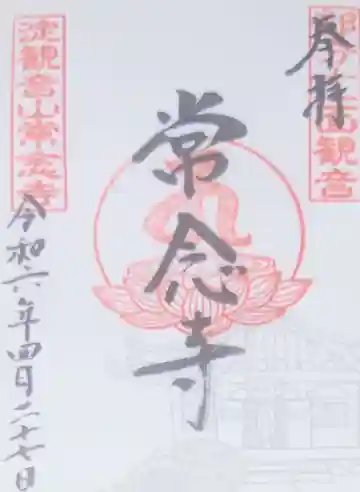 奉拝
常念寺
令和六年四月二十七日
淀観音山常念寺